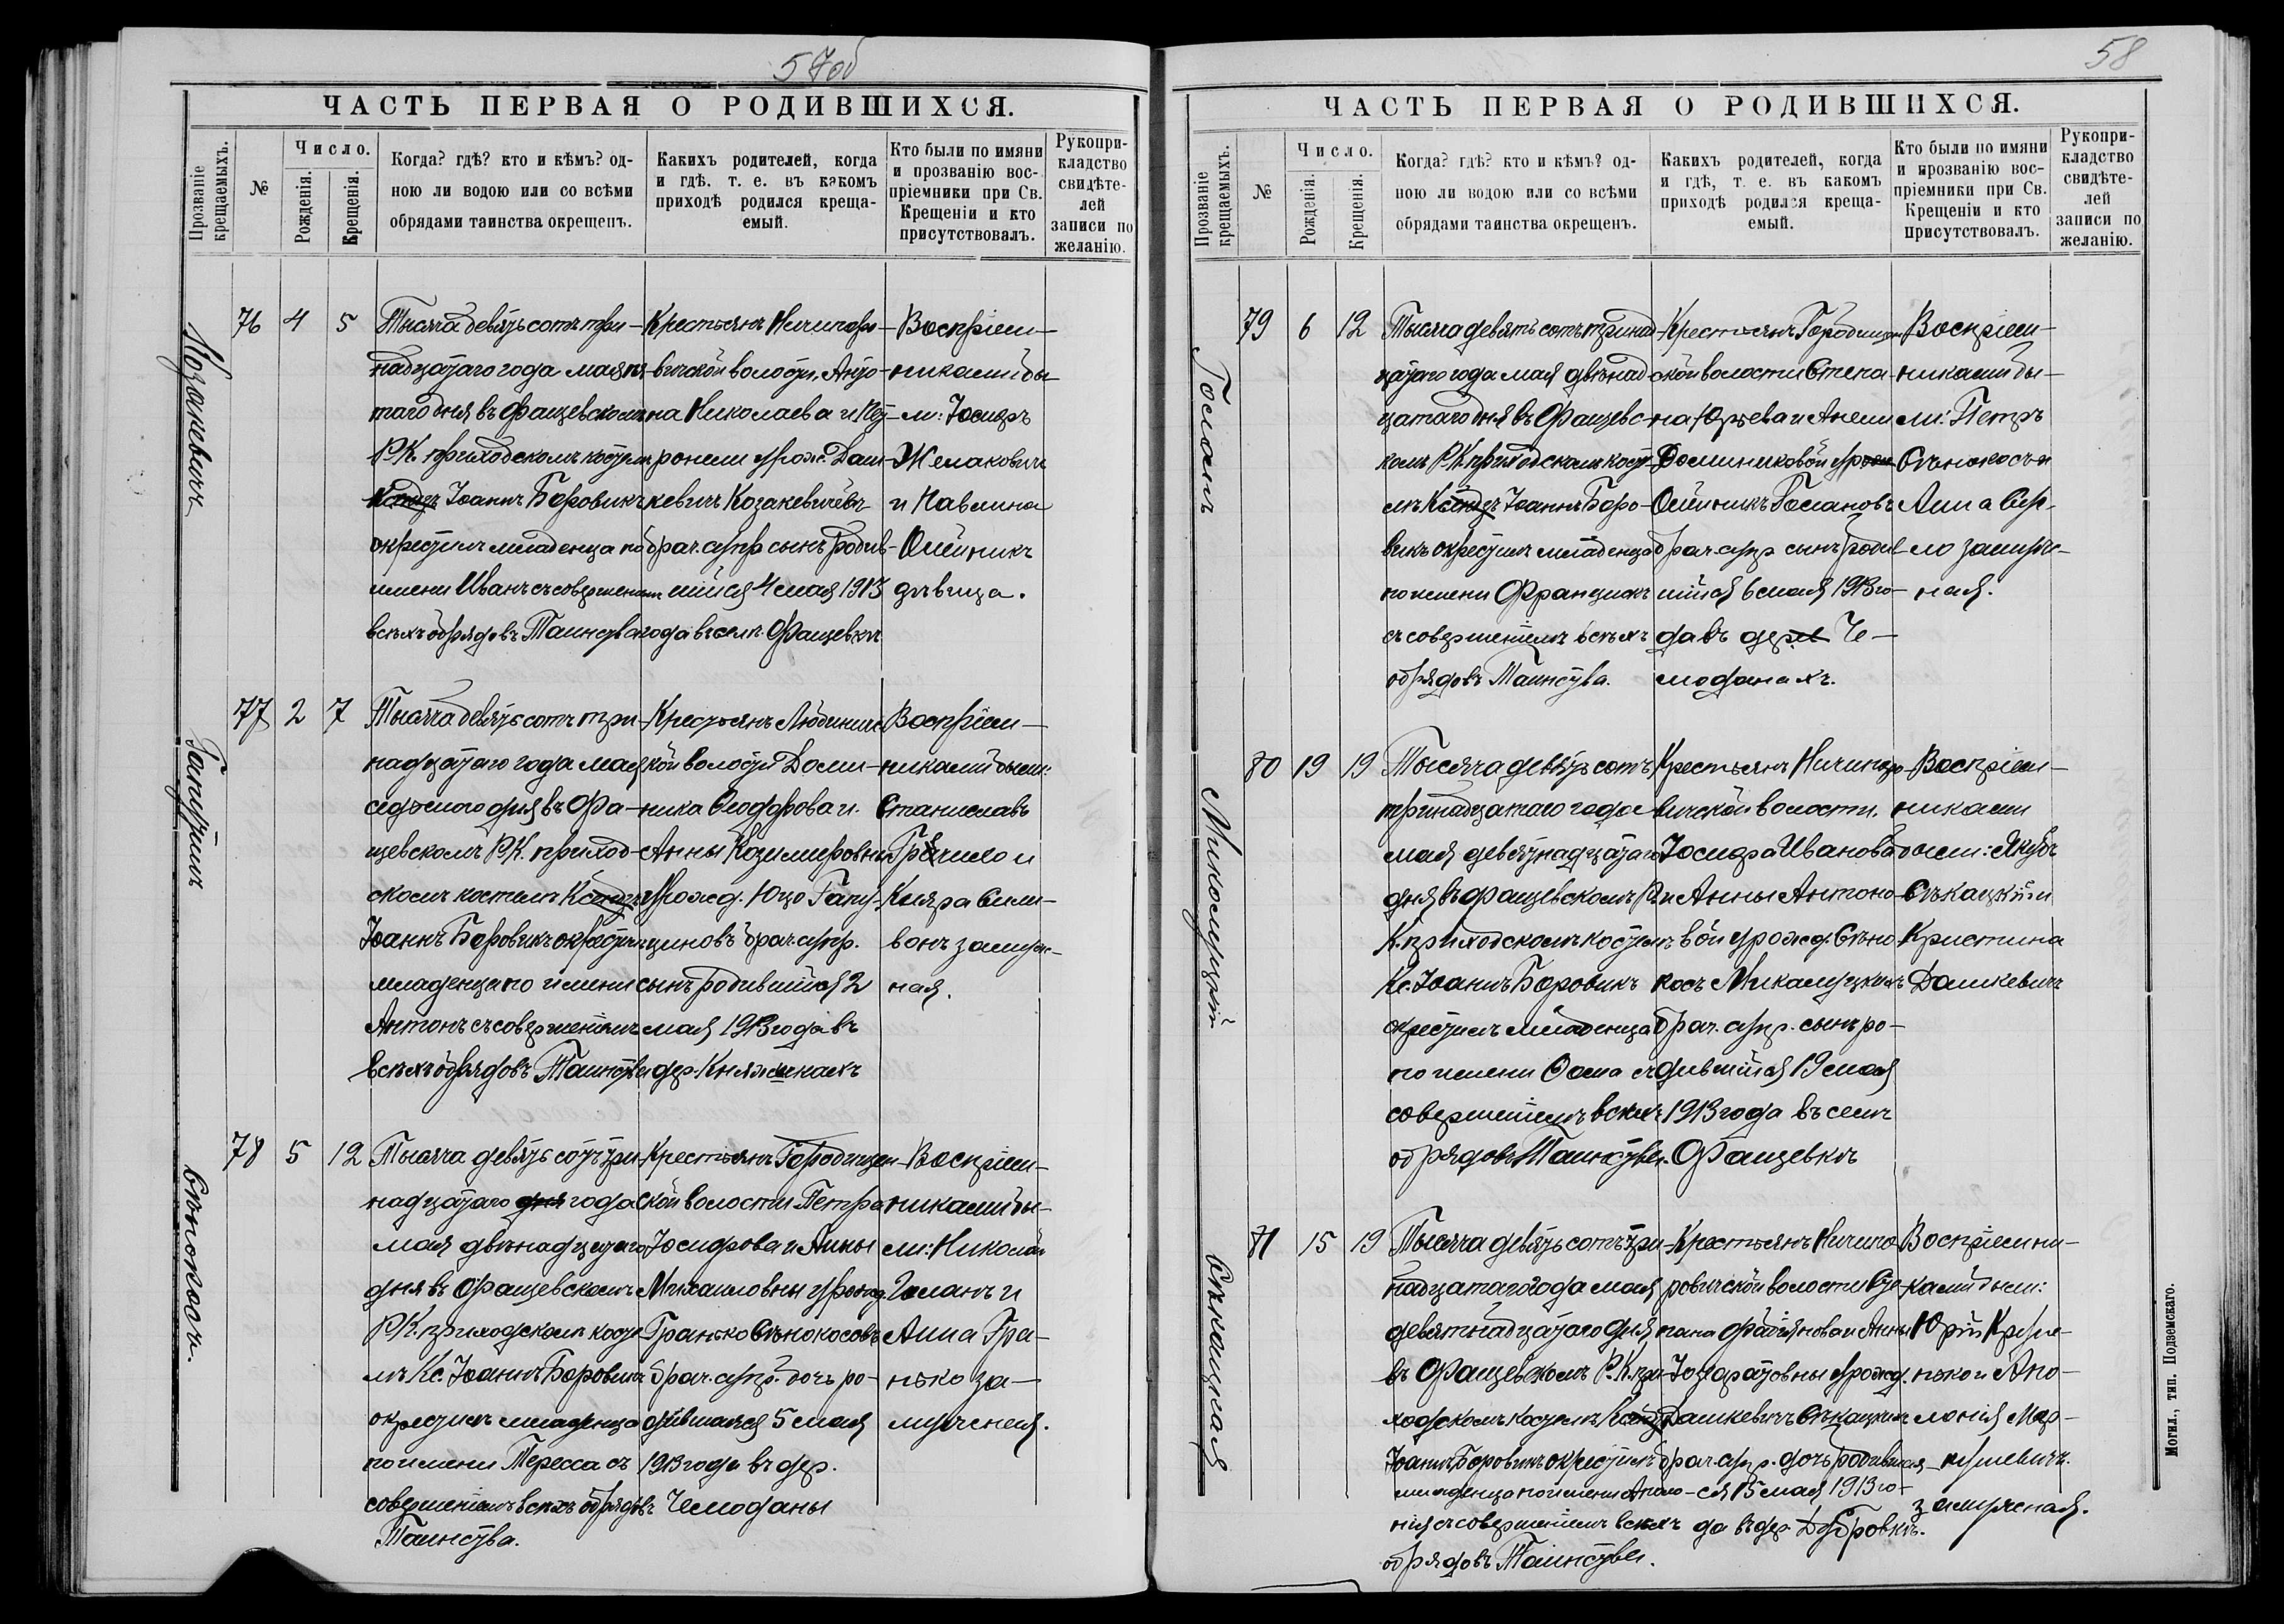 57об
ЧАСТЬ ПЕРВАЯ О РОДИВШИХСЯ.
Прозваніе крещаемыхъ.
№
Число.
Рожденія.
Крещенія.
Когда? гдѣ? кто и кѣмъ? од-
ною ли водою или со всѣми
обрядами таинства окрещенъ.
Какихъ родителей, когда
и гдѣ. т. е. въ какомъ
приходѣ родился креща-
емый.
Кто были по имяни
и прозванію вос-
пріемники при Св.
Крещеніи и кто
присутствовалъ.
Рукопри-
кладство
свидѣте-
лей
записи по
желанію.
Козакевичъ
76
4
5
Тысяча девятьсотъ три-
надцатаго года мая пя-
таго дня въ Фащевскомъ
Р.К. приходскомъ костелѣ
Ксендзъ Іоаннъ Боровикъ
окрестилъ младенца по
имени Иванъ съ совершеніемъ
всѣхъ обрядовъ Таинства
Крестьянъ Ничипоро-
вичской волости, Анто-
на Николаева и Пет-
ронели урож. Даш-
кевичъ Козакевичевъ
брач. супр. сынъ родив-
шійся 4 мая 1913
года въ селѣ Фащевкѣ
Воспріем-
никами бы-
ли: Іосифъ
Желакович
и Павлина
Олейникъ
дѣвица.
Гапуцинъ
77
2
7
Тысяча девятьсотъ три-
надцатаго года мая
седьмого дня въ Фа-
щевскомъ Р.К. приход-
скомъ костелѣ Ксендзъ
Іоаннъ Боровикъ окрестилъ
младенца по имени
Антонъ съ совершеніемъ
всѣхъ обрядовъ Таинства
Крестьянъ
кой волости Доми-
ника Феодорова и
Анны Казимировны
урожд. Юцо Гапу-
циновъ брач. супр.
сынъ родившійся 2
мая 1913 года въ
дер. Княжикахъ
Воспріем-
никами были:
Станиславъ
и
Кляра Сили-
вонъ замуж-
няя.
Сѣнокосъ.
78
5
12
Тысяча девятьсотъ три-
надцатаго дня года
мая двѣнадцатаго
дня въ Фащевскомъ
Р.К. приходскомъ косте-
лѣ Кс. Іоаннъ Боровикъ
окрестилъ младенца
по имени Тересса съ
совершеніемъ всѣхъ обрядовъ
Таинства.
Крестьянъ Городищен-
ской волости Петра
Іосифова и Анны
Михаиловны урожд.
Гранько Сѣнокосовъ
брач. супр. дочь ро-
дившаяся 5 мая
1913 года въ дер.
Чемоданы
Воспріем-
никами бы-
ли: Николай
Голанъ и
Анна Гра-
нько за-
мужняя.
58
ЧАСТЬ ПЕРВАЯ О РОДИВШИХСЯ.
Прозваніе крещаемыхъ.
№
Число.
Рожденія.
Крещенія.
Когда? гдѣ? кто и кѣмъ? од-
ною ли водою или со всѣми
обрядами таинства окрещенъ.
Какихъ родителей, когда
и гдѣ, т. е. въ какомъ
приходѣ родился креща-
емый.
Кто были по имяни
и прозванію вос-
пріемники при Св.
Крещеніи и кто
присутствовалъ.
Рукопри-
кладство
свидѣте-
лей
записи по
желанію.
Голанъ
79
6
12
Тысяча девятьсотъ тринад-
цатаго года мая двѣнад-
цатаго дня въ Фащевс-
комъ Р.К. приходскомъ косте-
лѣ Ксендзъ Іоаннъ Боро-
викъ окрестилъ младенца
по имени Францискъ
съ совершеніемъ всѣхъ
обрядовъ Таинства.
Крестьянъ Городищен-
ской волости Степа-
на Юрьева и Анели
Доминиковой урож.
Олейникъ Голановъ
брач. супр. сынъ родив-
шійся 6 мая 1913 го-
да въ дерев Че-
моданахъ.
Воспріем-
никами бы-
ли: Петръ
Сѣнокосъ и
Анна
замуж-
няя.
Миколуцкій
80
19
19
Тысяча девятьсотъ
тринадцатаго года
мая девятнадцатаго
дня въ Фащевскомъ Р.
К. приходскомъ костелѣ
Кс. Іоаннъ Боровикъ
окрестилъ младенца
по имени Фома съ
совершеніемъ всѣхъ
обрядовъ Таинства.
Крестьянъ Ничипоро-
вичской волости.
Іосифа Иванова
и Анны Антоно-
вой урожд. Сѣно-
косъ Микалуцкихъ
брач. супр. сынъ ро-
дившійся 19 мая
1913 года въ селѣ
Фащевкѣ
Воспріем-
никами
были: Якубъ
Сѣкацкій и
Кристина
Дашкевичъ
Сѣкацкая
81
15
19
Тысяча девятьсотъ три-
надцатаго года мая
девятнадцатаго дня
въ Фащевскомъ Р.К. при-
ходскомъ костелѣ Ксендзъ
Іоаннъ Боровикъ окрестилъ
младенца по имени Аполо-
нія съ совершеніемъ всѣхъ
обрядовъ Таинства.
Крестьянъ Ничипо-
ровичской волости Сте-
пана Фабіянова и Анны
Іозафатовны урожд.
Дашкевичъ Сѣкацкихъ
брач. супр. дочь родившая-
ся 15 мая 1913 го-
да въ дер. Дубровкѣ.
Воспріемни-
ками были:
Юрій
и Апо-
лонія Мар-
замужняя.
Могил., тип. Подземскаго.